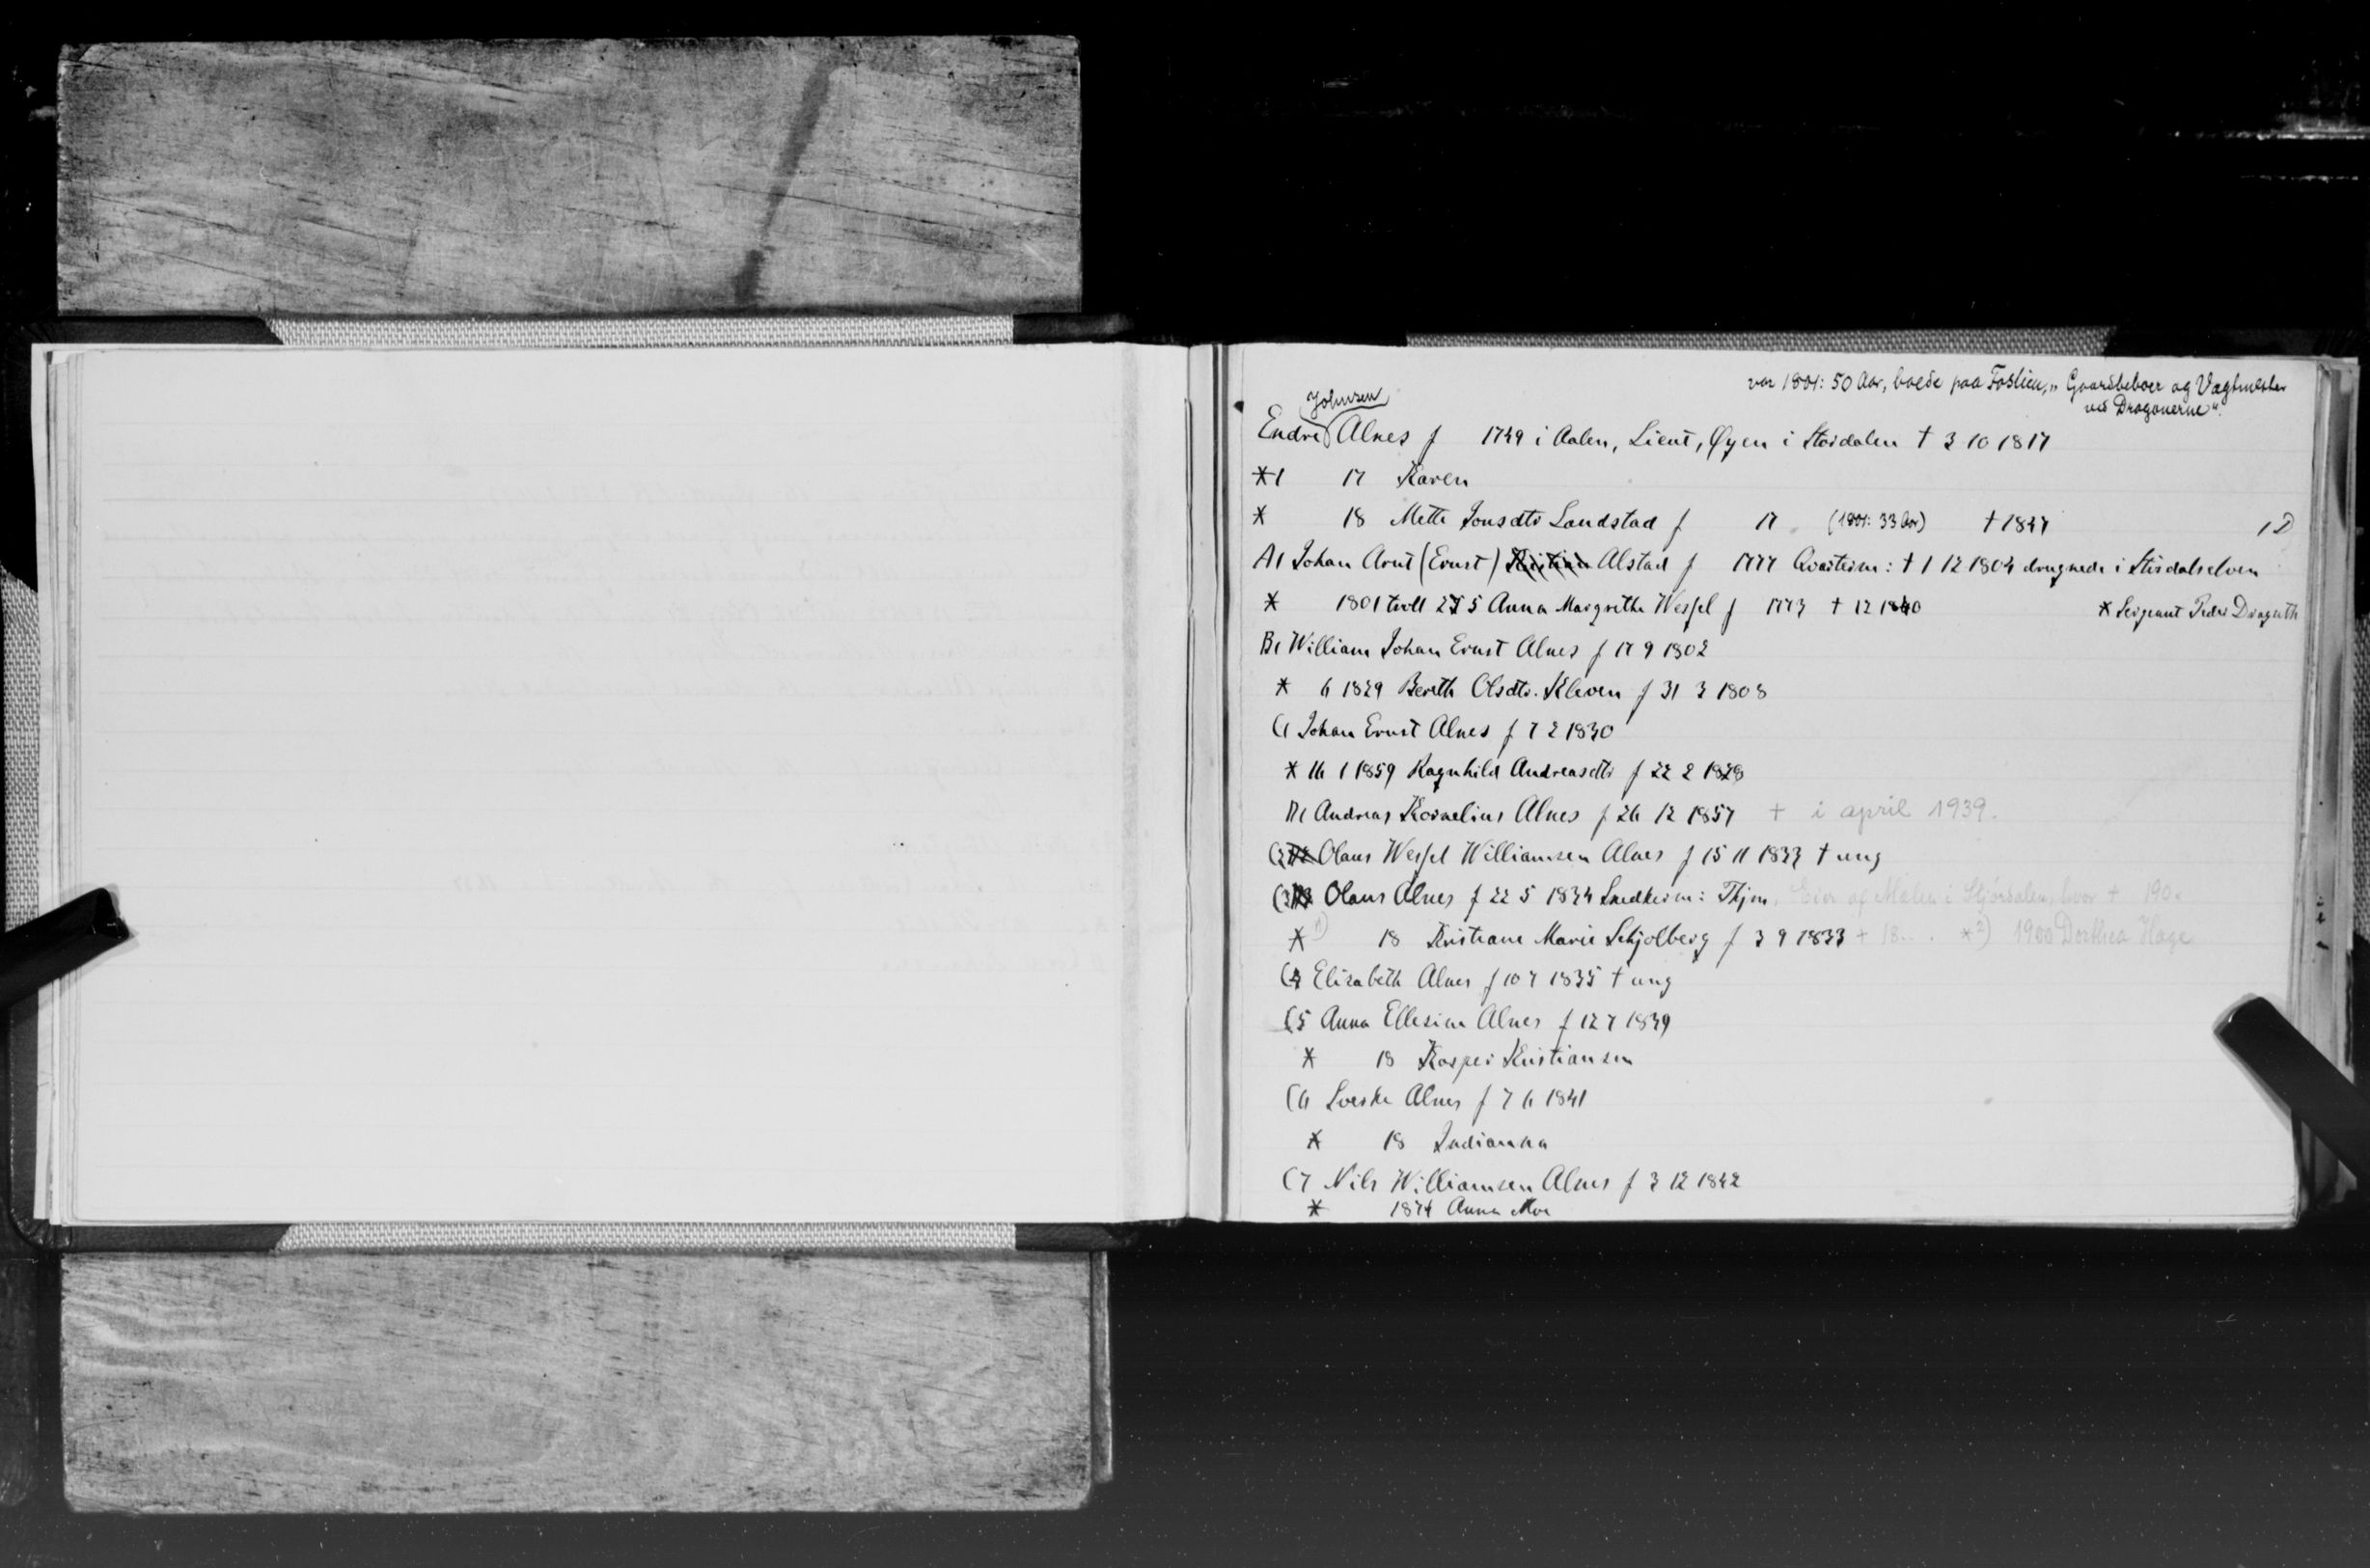 var 1801: 50 Aar, boede paa Foslien, „Gaardbeboer og Vagtmester
ved Dragonerne“.
(Johnsen)
Endre Alnes f 1749 i Aalen, Lieut, Øyen i Størdalen † 3 10 1817
*1 17 Karen
* 18 Mette Jonsdtr Landstad f 17 (1801: 33 Aar) † 1847 1 D
A1 Johan Arnt (Ernst) Kristian Alstad f 1777 Qvarterm: † 1 12 1804 druknede i Størdalselven
* 1801 troll 27 5 Anna Margrethe Wessel f 1773 † 12 1840 * Sergeant Peder Draguth
B1 William Johan Ernst Alnes f 17 9 1802
* 6 1829 Bereth Olsdtr. Kleven f 31 3 1808
C1 Johan Ernst Alnes f 7 2 1830
* 16 1 1859 Ragnhild Andreasdtr f 22 2 1828
D1 Andreas Kornelius Alnes f 26 12 1857 † i april 1939.
C2 Olaus Wessel Williamsen Alnes f 15 11 1833 † ung
C3 Olaus Alnes f 22 5 1834 Snedkerm: Thjm. Eier af Mælen i Stjørdalen, hvor † 190.
* 1) 18 Kristiane Marie Schjølberg f 3 9 1833 † 18.. . *2) 1900 Dorthea Hage
C4 Elisabeth Alnes f 10 7 1835 † ung
C5 Anna Ellesine Alnes f 12 7 1839
* 18 Kasper Kristiansen
C6 Lverke Alnes f 7 6 1841
* 18 Indianna
C7 Nils Williamsen Alnes f 3 12 1842
* 1874 Anna Moe